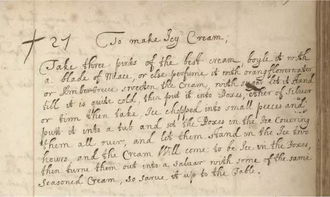 27 To make Icy Cream;
Take three pints of the best cream, boyle it with
a blade of Mace, or else perfume it with orangflowerwater
or Ambergreece, sweeten the Cream, with sugar let it stand
till it is quite cold, then put it into Boxes, either of Silver
or tinn then take, Ice chopped into small peeces and
putt it into a tub and set the Boxes in the Ice Covering
them all over, and let them stand in the Ice two
hours, and the Cream Will come to be Ice in the Boxes,
then turne them out into a salvar with some of the same
Seasoned Cream, so sarve it up to the Table.